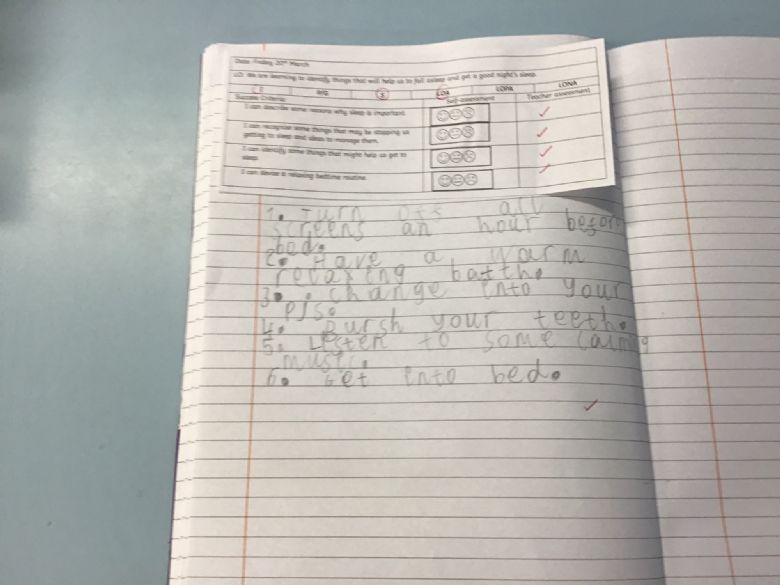 Date: Friday 20th March
LO: We are learning to identify things that will help us to fall asleep and get a good night's sleep.
CT HG S LOA LOPA LONA
Success Criteria: Self-assessment Teacher assessment
I can describe some reasons why sleep is important.
I can recognise some things that may be stopping us
getting to sleep and ideas to manage them.
I can identify some things that might help us get to
sleep.
I can devise a relaxing bedtime routine.
1. Turn off all
screens an hour befor
bed.
2. Have a warm
relaxing batth.
3. change into your
PJs.
4. bursh your teeth.
5. Listen to some calming
music.
6. Get into bed.